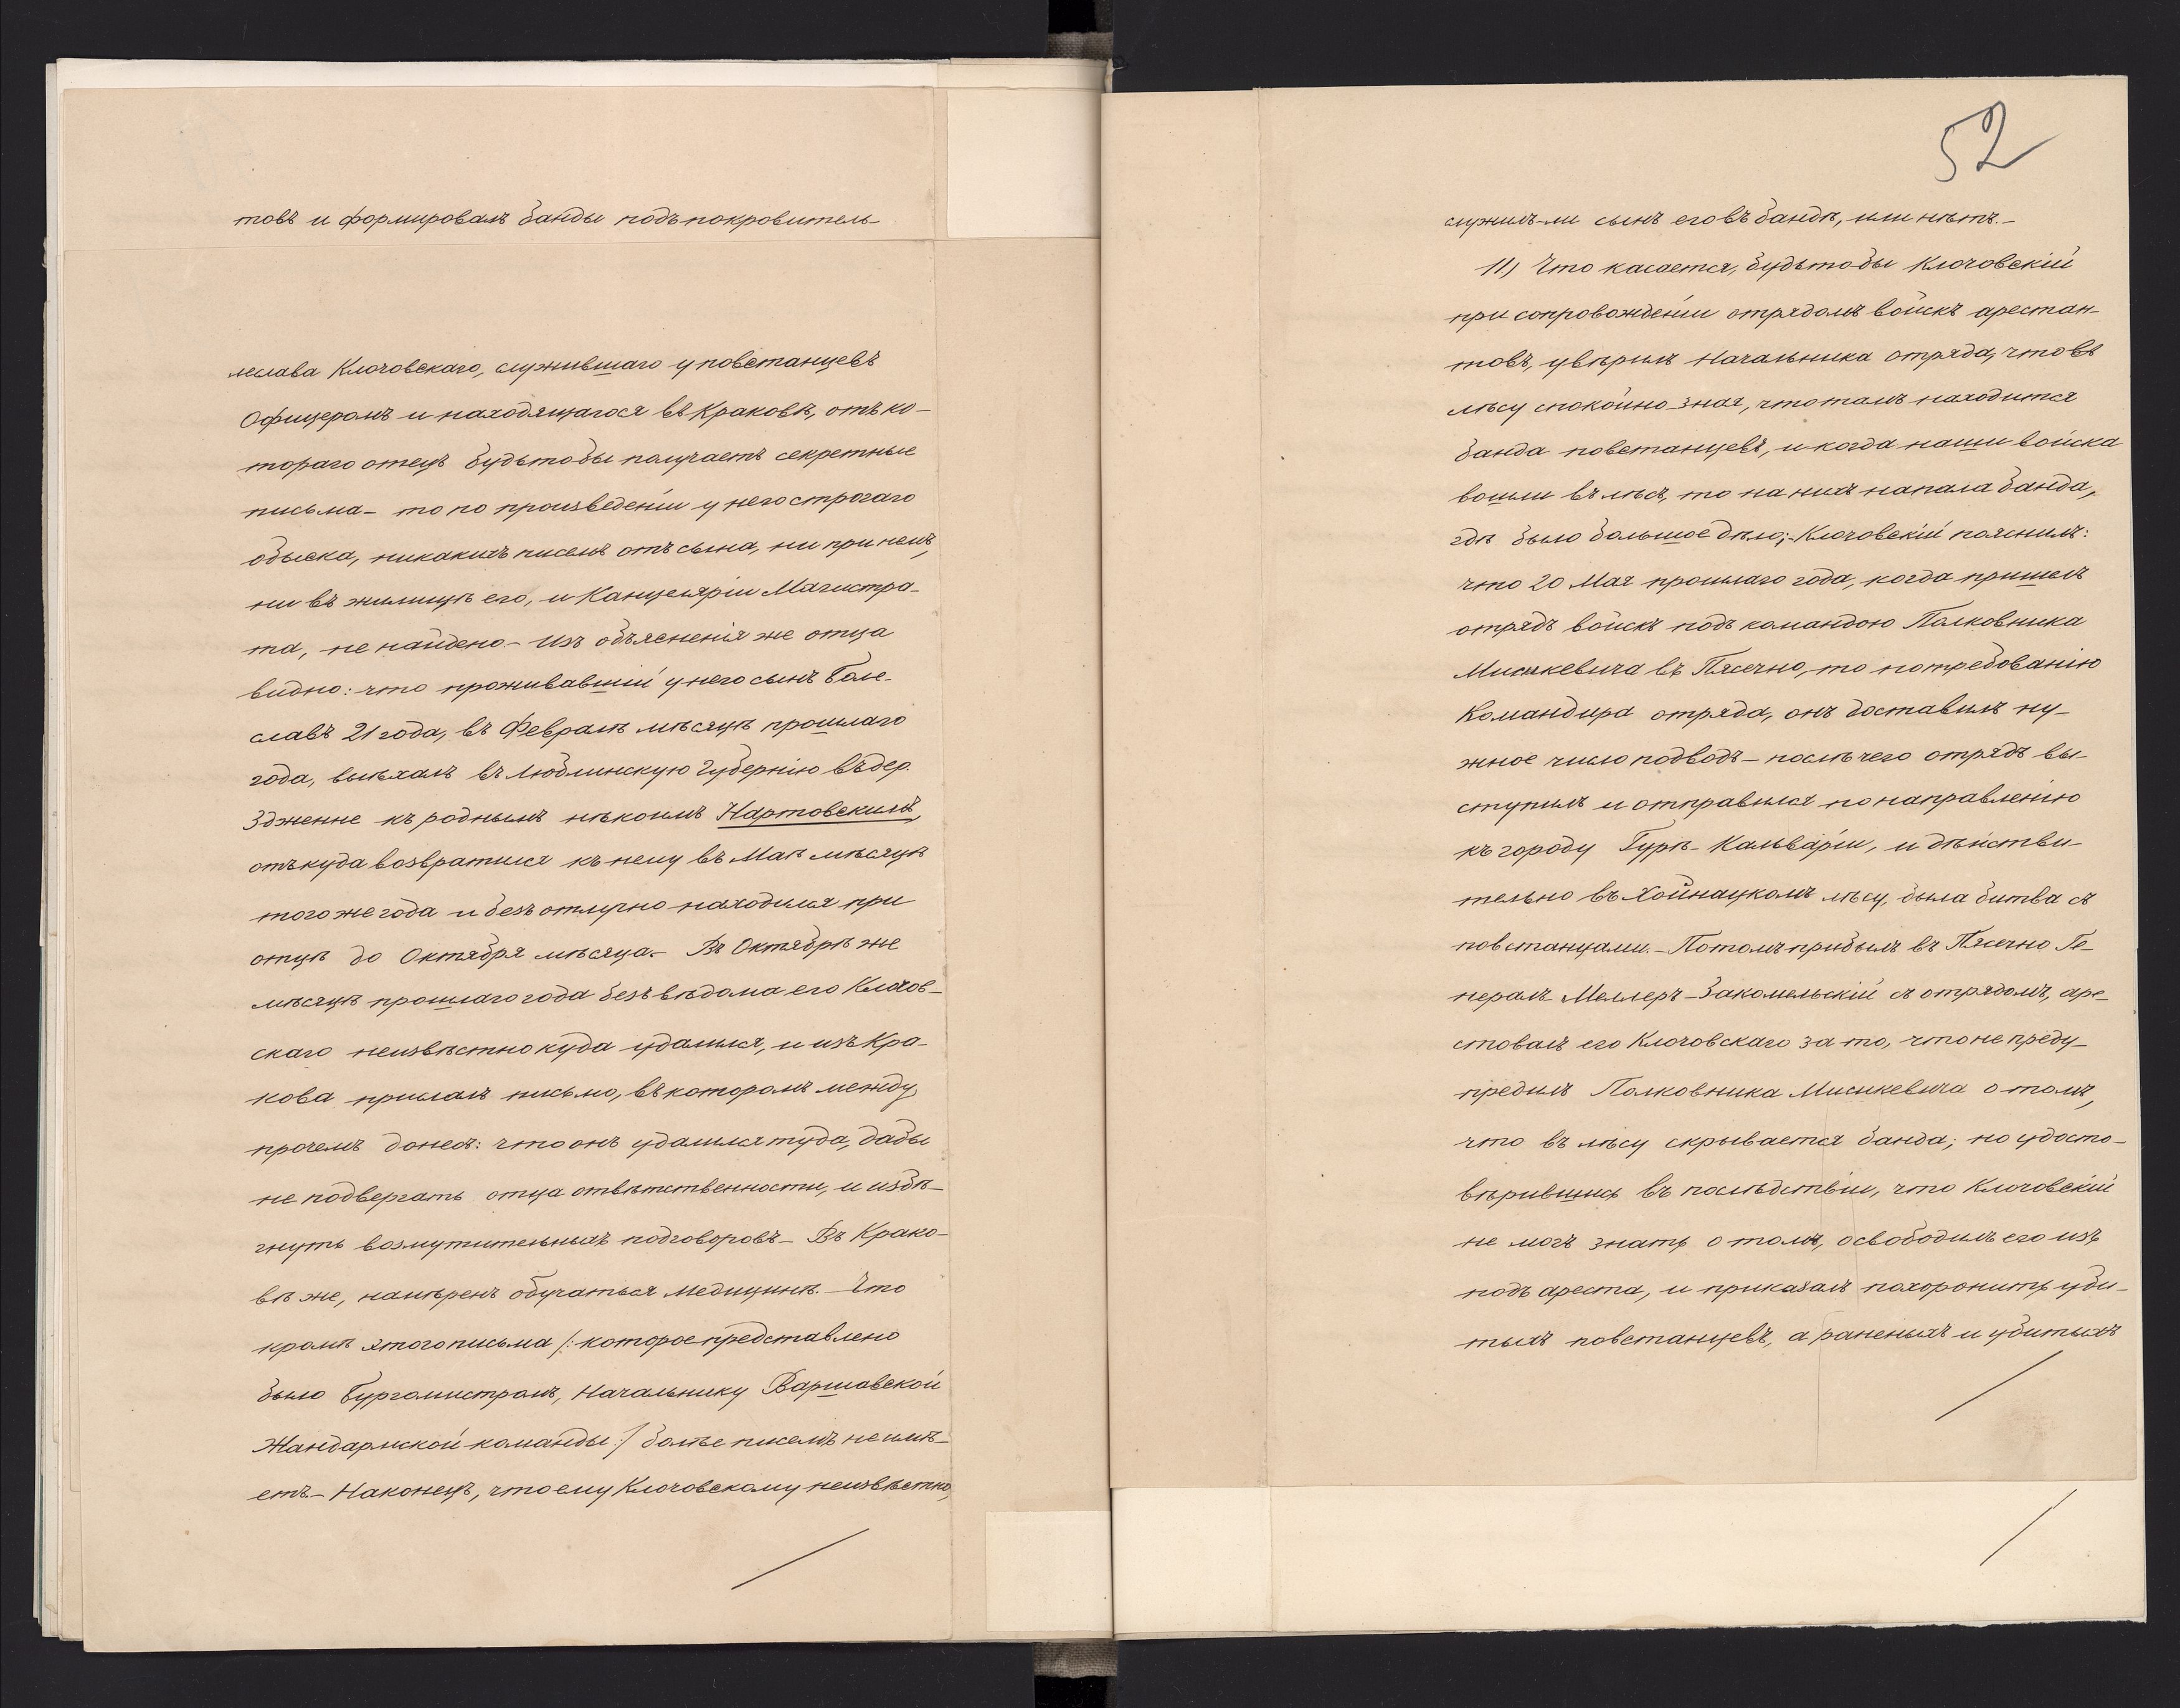 товъ и формировалъ банды подъ покровитель-
леслава Клочовскаго, служившаго у повстанцевъ
Офицеромъ и находящагося въ Краковѣ, отъ ко-
тораго отецъ будьтобы получаетъ секретные
письма – то по произведеніи у него строгаго
обыска, никакихъ писемъ отъ сына, ни при немъ,
ни въ жилищѣ его, и Канцеляріи Магистра-
та, не найдено – Изъ объясненія же отца
видно: что проживавшій у него сынъ Боле-
славъ 21 года, въ Февралѣ мѣсяцѣ прошлаго
года, выѣхалъ въ Люблинскую Губернію въ дер.
Здженне къ роднымъ нѣкоимъ Нартовскимъ,
отъ куда возвратился къ нему въ Маѣ мѣсяцѣ
того же года и безъ отлучно находился при
отцѣ до Октября мѣсяца. – Въ Октябрѣ же
мѣсяцѣ прошлаго года безъ вѣдома его Клочов-
скаго неизвѣстно куда удалился, и изъ Кра-
кова прислалъ письмо, въ которомъ между
прочемъ донесъ: что онъ удалился туда, дабы
не подвергать отца отвѣтственности, и избѣ-
гнуть возмутительныхъ подговоровъ – Въ Крако-
вѣ же, намѣренъ обучаться медицинѣ. – Что
кромѣ этого письма /: которое представлено
было Бургомистромъ, Начальнику Варшавской
Жандармской команды :/ болѣе писемъ не имѣ-
етъ – Наконецъ, что ему Клочовскому неизвѣстно,
52
служилъ-ли сынъ его въ бандѣ, или нѣтъ. –
11) Что касается, будьтобы Клочовскій
при сопровожденіи отрядомъ войскъ арестан-
товъ, увѣрилъ Начальника отряда, что въ
лѣсу спокойно зная, что тамъ находится
банда повстанцевъ, и когда наши войска
вошли въ лѣсъ, то на нихъ напала банда,
гдѣ было большое дѣло; – Клочовскій пояснилъ:
что 20 Мая прошлаго года, когда пришелъ
отрядъ войскъ подъ командою Полковника
Мисикевича въ Пясечно, то по требованію
Командира отряда, онъ доставилъ ну-
жное число подводъ – послѣ чего отрядъ вы-
ступилъ и отправился по направленію
къ городу Гурѣ-Кальваріи, и дѣйстви-
тельно въ Хойнацкомъ лѣсу, была битва съ
повстанцами. – Потомъ прибылъ въ Пясечно Ге-
нералъ Меллеръ-Закомельскій съ отрядомъ, аре-
стовалъ его Клочовскаго за то, что не преду-
предилъ Полковника Мисикевича о томъ,
что въ лѣсу скрывается банда; но удосто-
вѣрившись въ послѣдствіи, что Клочовскій
не могъ знать о томъ, освободилъ его изъ
подъ ареста, и приказалъ похоронить уби-
тыхъ повстанцевъ, а раненыхъ и убитыхъ